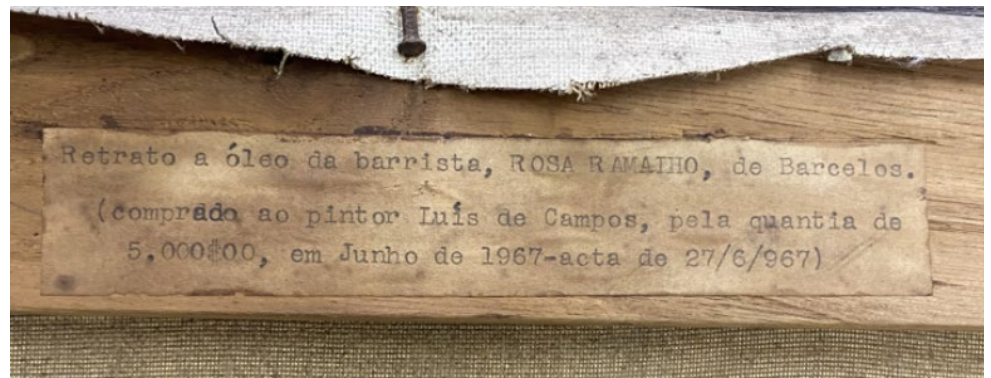 Retrato a óleo da barrista, ROSA RAMALHO, de Barcelos.
(comprado ao pintor Luís de Campos, pela quantia de
5.000$00, em Junho de 1967-acta de 27/6/967)